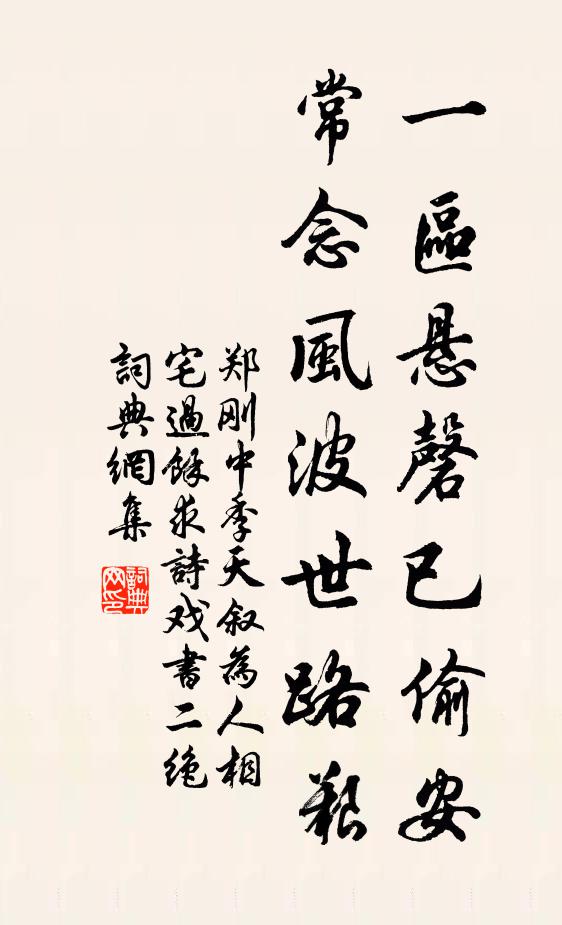 一區悬磬已偷安
常念風波世路艱
郑刚中季天叙為人相
宅過餘求詩戏書二绝
詞典網集
詞典網印